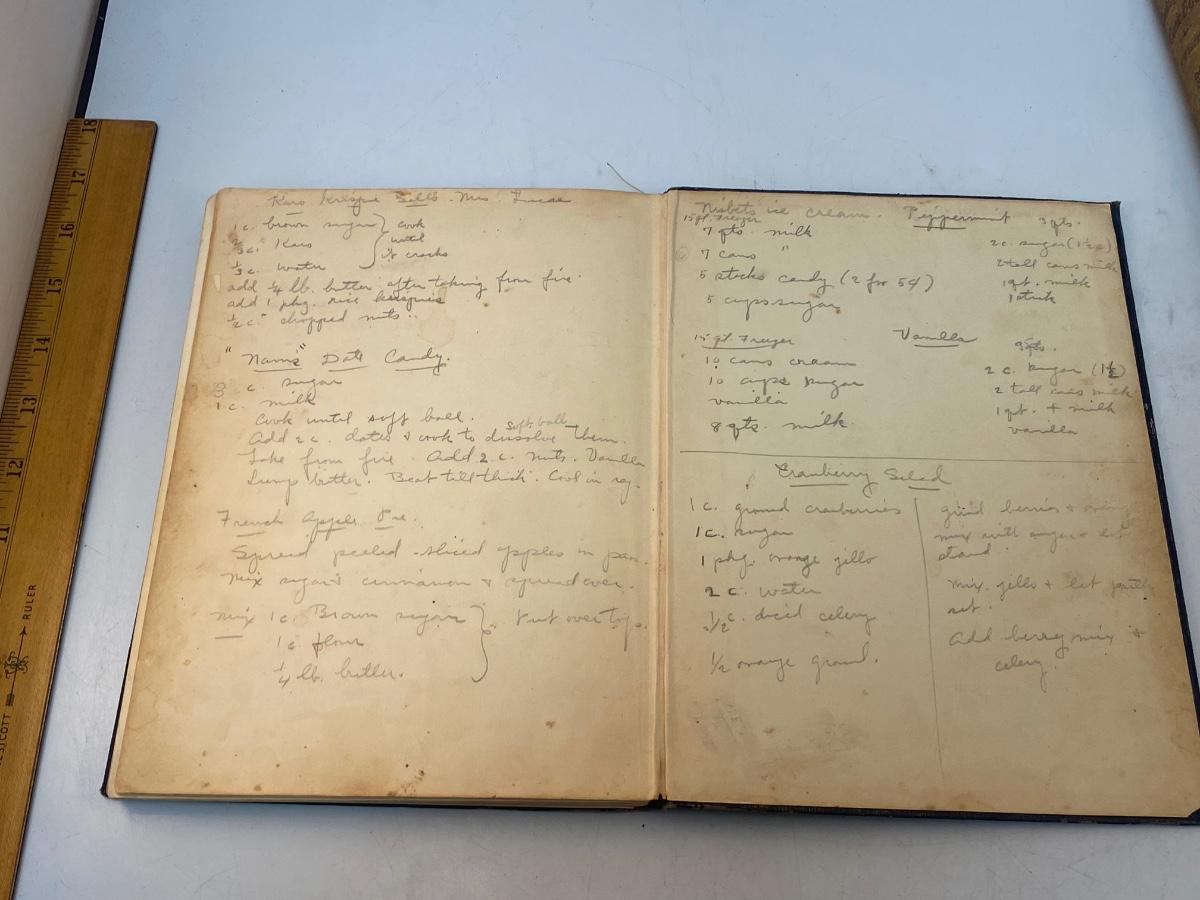 Karo Krispie Balls. Mrs. Lucas
1 c. brown sugar } cook
2/3 c. Karo } until
1/3 c. water } it cracks
add 1/4 lb. butter after taking from fire.
add 1 pkg. rice krispies
1/2 c. chopped nuts.
"Nams" Date Candy.
3 c. sugar
1 c. milk
Cook until soft ball.
soft ball
Add 2 c. dates & cook to dissolve them.
Take from fire. Add 2 c. nuts. Vanilla
Lump butter. Beat till thick. Cool in
French Apple Pie.
Spread peeled sliced apples in pan.
Mix sugar & cinnamon & spread over.
Mix 1 c. Brown sugar } Put over top.
1 c. flour
1/4 lb. butter.
Nisbets ice cream. Peppermint
15 qt. Freezer
7 qts. milk
7 cans "
5 sticks candy (2 for 5¢)
5 cups sugar
3 qts.
2 c. sugar (1 1/2 c)
2 tall cans milk
1 qt. milk
1 stick
Vanilla
15 qt. Freezer
10 cans cream
10 cups sugar
vanilla
8 qts. milk
3 qts.
2 c. sugar (1 1/2)
2 tall cans milk
1 qt. + milk
vanilla
Cranberry Salad
1 c. ground cranberries
1 c. sugar
1 pkg. orange jello
2 c. water
1/2 c. diced celery
1/2 orange ground.
grind berries & orange
mix with sugar & let
stand.
Mix jello & let partly
set.
Add berry mix &
celery.
18
17
16
15
14
13
12
11
RULER